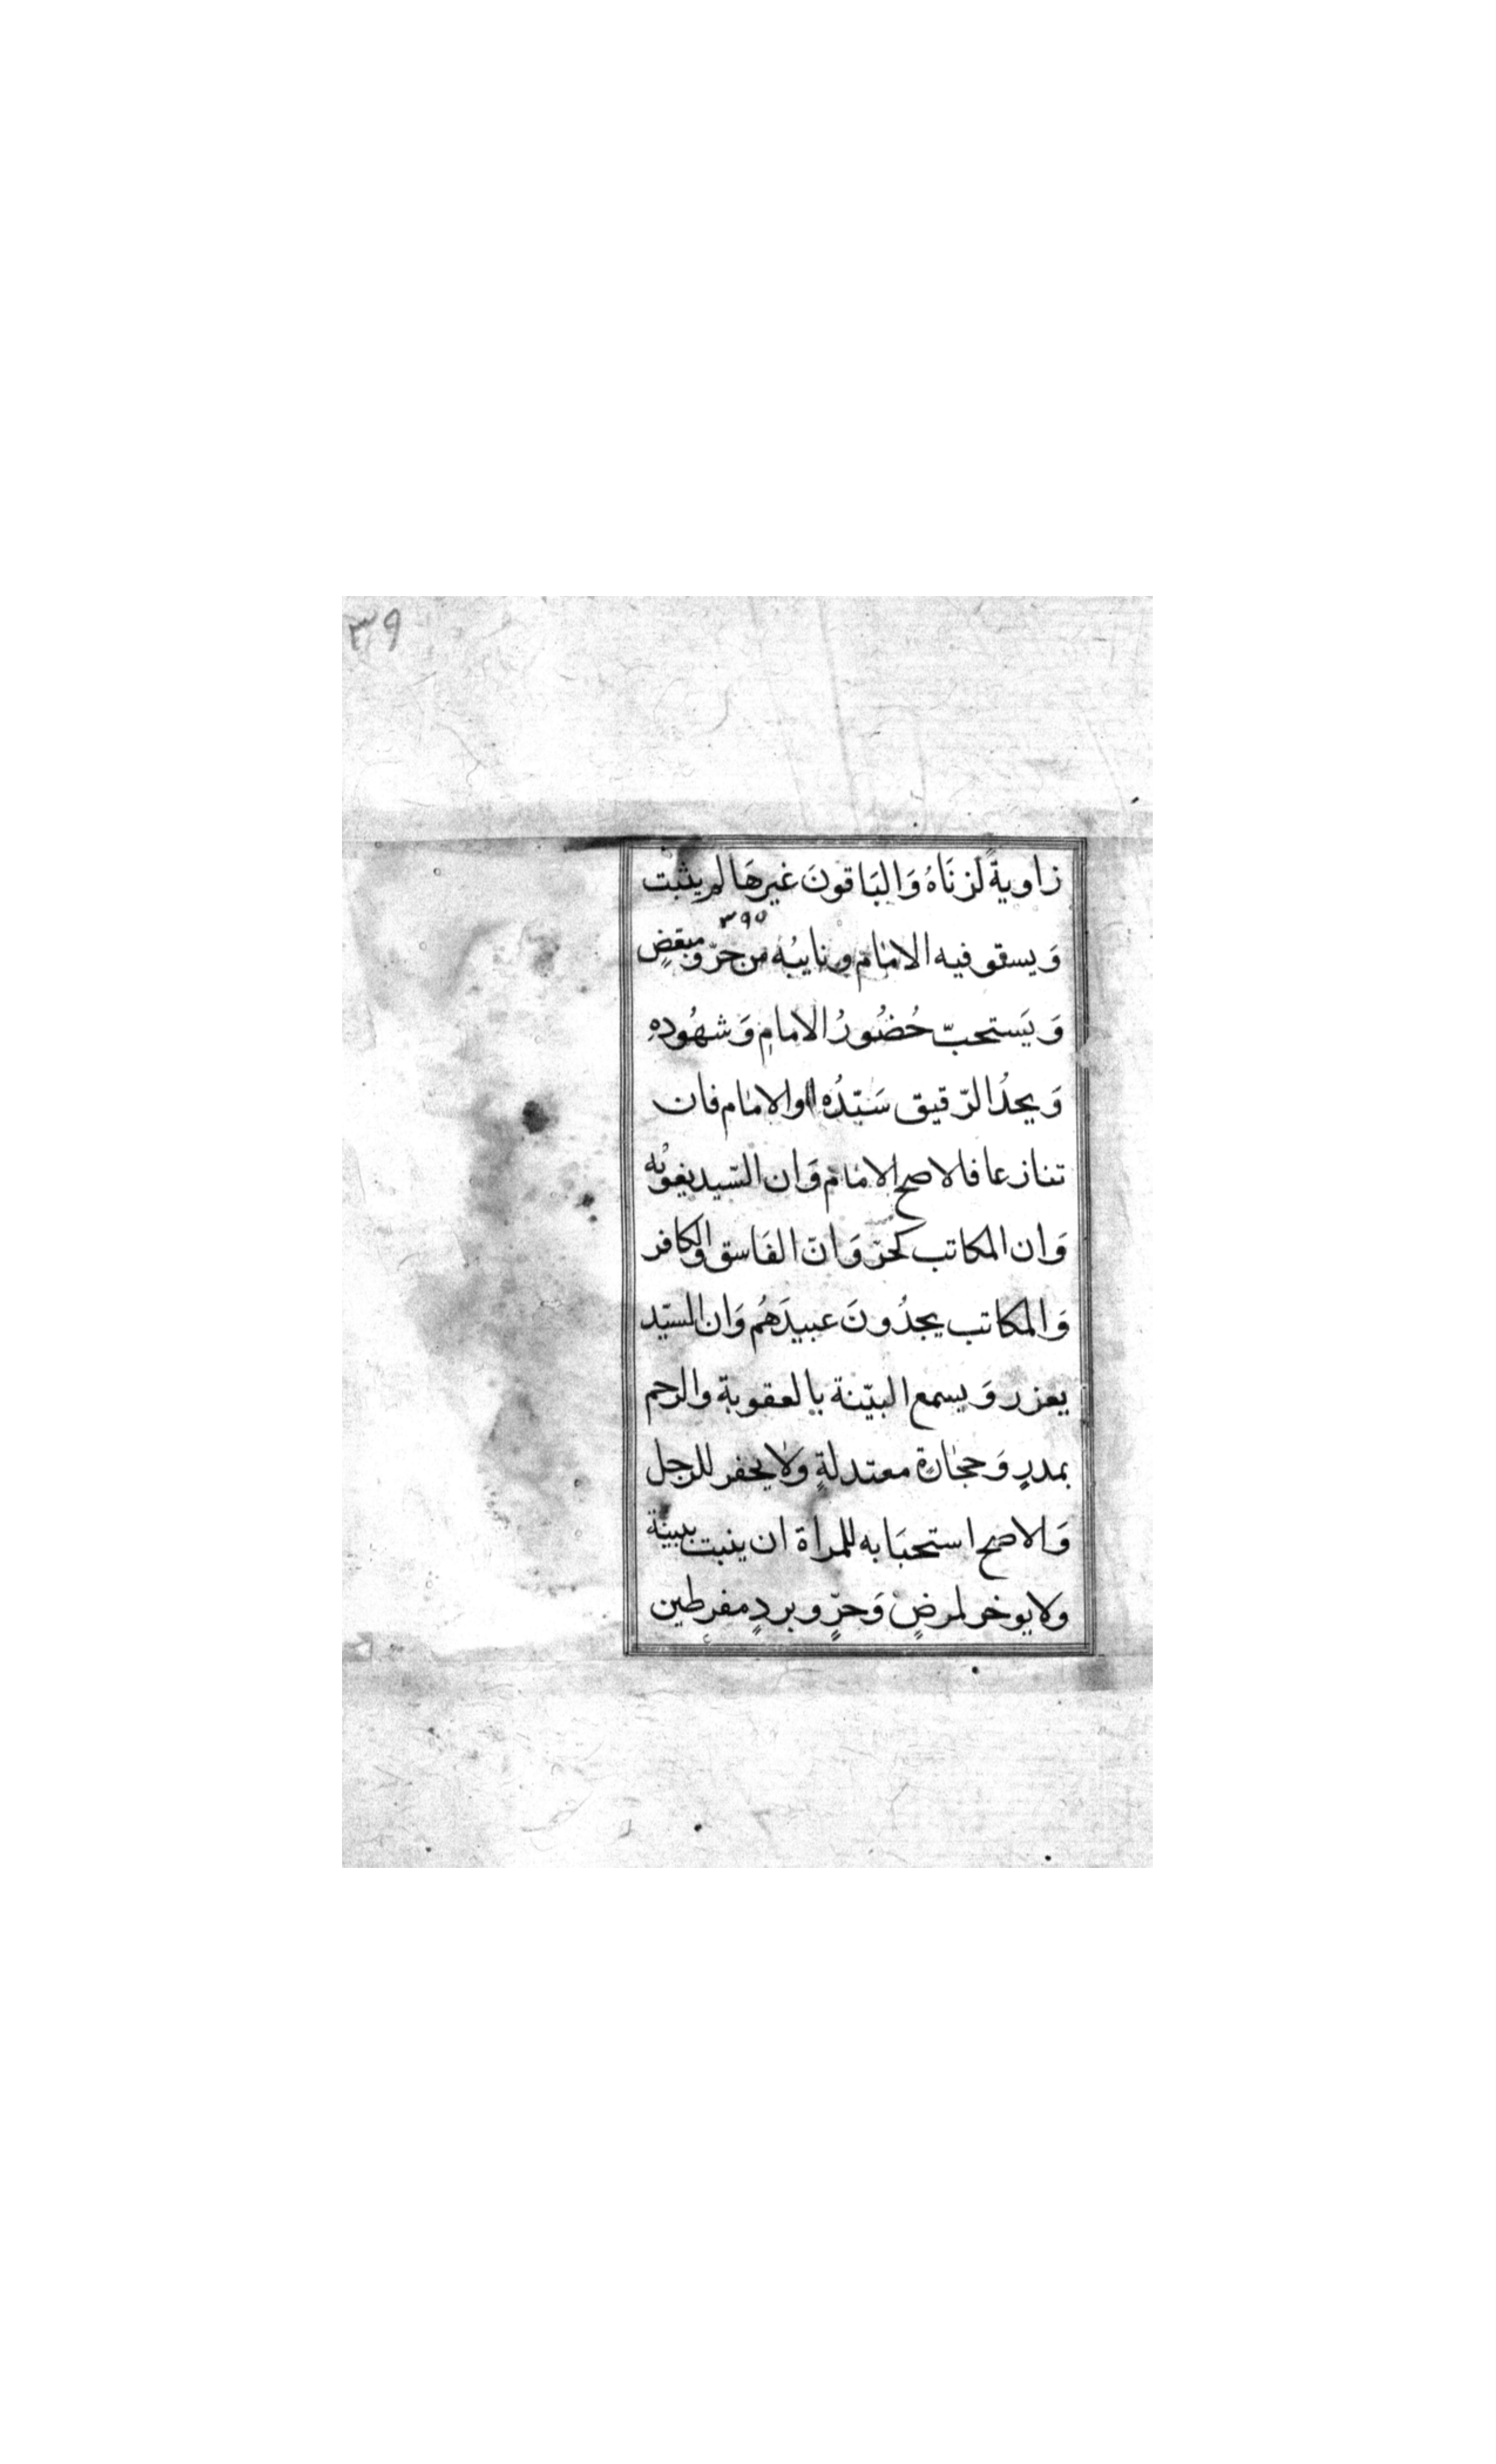 ٣٩
زاويةً لزنَاهُ وَالبَاقونَ غيرهَا لم يثبت
٣٩٥
وَيسقوفيه الامَام ونايبُه من حرّ ومبعّضٍ
وَيَستحبّ حُضُورُ الامامِ وَشهُودهِ
وَيحدُ الرّقيق سَيّدُه او الامَام فان
تنازعا فالاصح الامَام وَان السّيد يغرّبُه
وَان المكاتب كحرّ وَانّ الفَاسق والكافر
وَالمكاتب يحدُونَ عبيدَهُم وَان السيّد
يعزر وَيسمع البيّنة بالعقوبة والرجم
بمدرٍ وَحجَارة معتدلةٍ ولا يحفر للرجل
وَالاصح استحبَابه للمراة ان يثبت ببينة
ولا يوخر لمرضٍ وَحرٍّ وبردٍ مفرطين